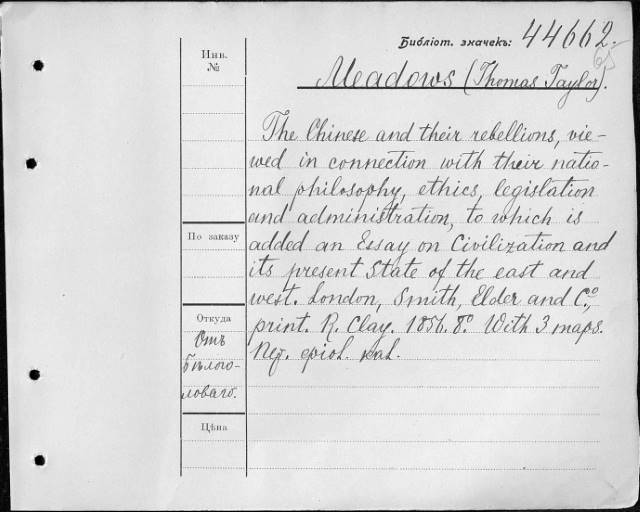 Библіот. значекъ: 44662.
65
Инв.
№
Meadows (Thomas Taylor).
The Chinese and their rebellions, vie-
wed in connection with their natio-
nal philosophy, ethics, legislation
and administration, to which is
added an Essay on Civilization and
its present State of the east and
west. London, Smith, Elder and Cº,
print. R. Clay. 1856. 8º. With 3 maps.
По заказу
Откуда
Отъ
Цѣна